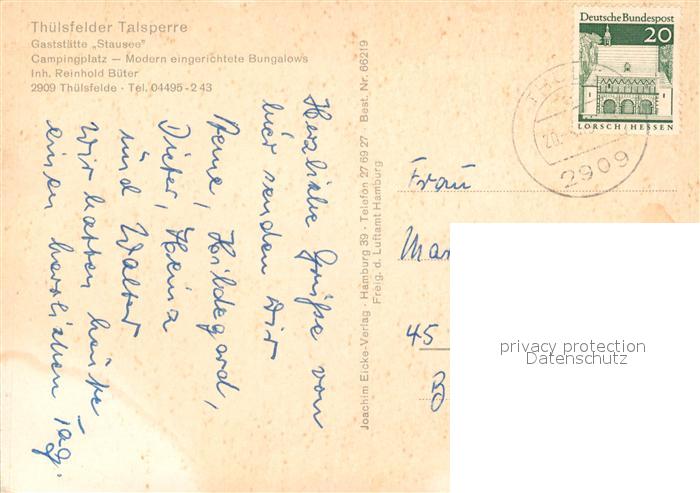 Thülsfelder Talsperre
Gaststätte „Stausee"
Campingplatz — Modern eingerichtete Bungalows
Inh. Reinhold Büter
2909 Thülsfelde · Tel. 04495-2 43
Herzliche Grüße von
hier senden Dir
Rene, Hildegard,
Dieter, Heina
und Walter
Wir hatten heute
einen herrlichen Tag.
Joachim Eicke-Verlag · Hamburg 39 · Telefon 27 69 27 · Best. Nr. 66219
Freig. d. Luftamt Hamburg
Deutsche Bundespost
20
LORSCH/HESSEN
2909
Frau
Mar
45
privacy protection
Datenschutz